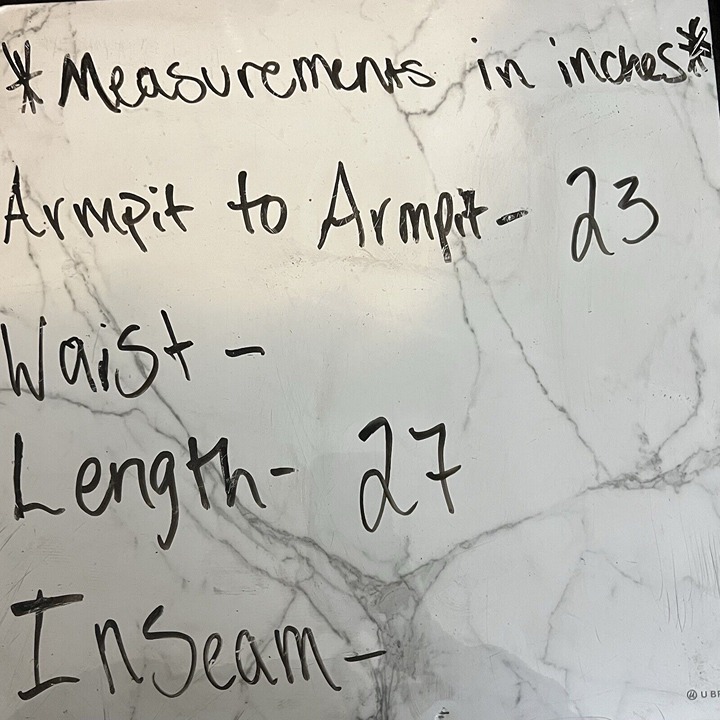 *Measurements in inches*
Armpit to Armpit- 23
Waist -
Length- 27
Inseam -